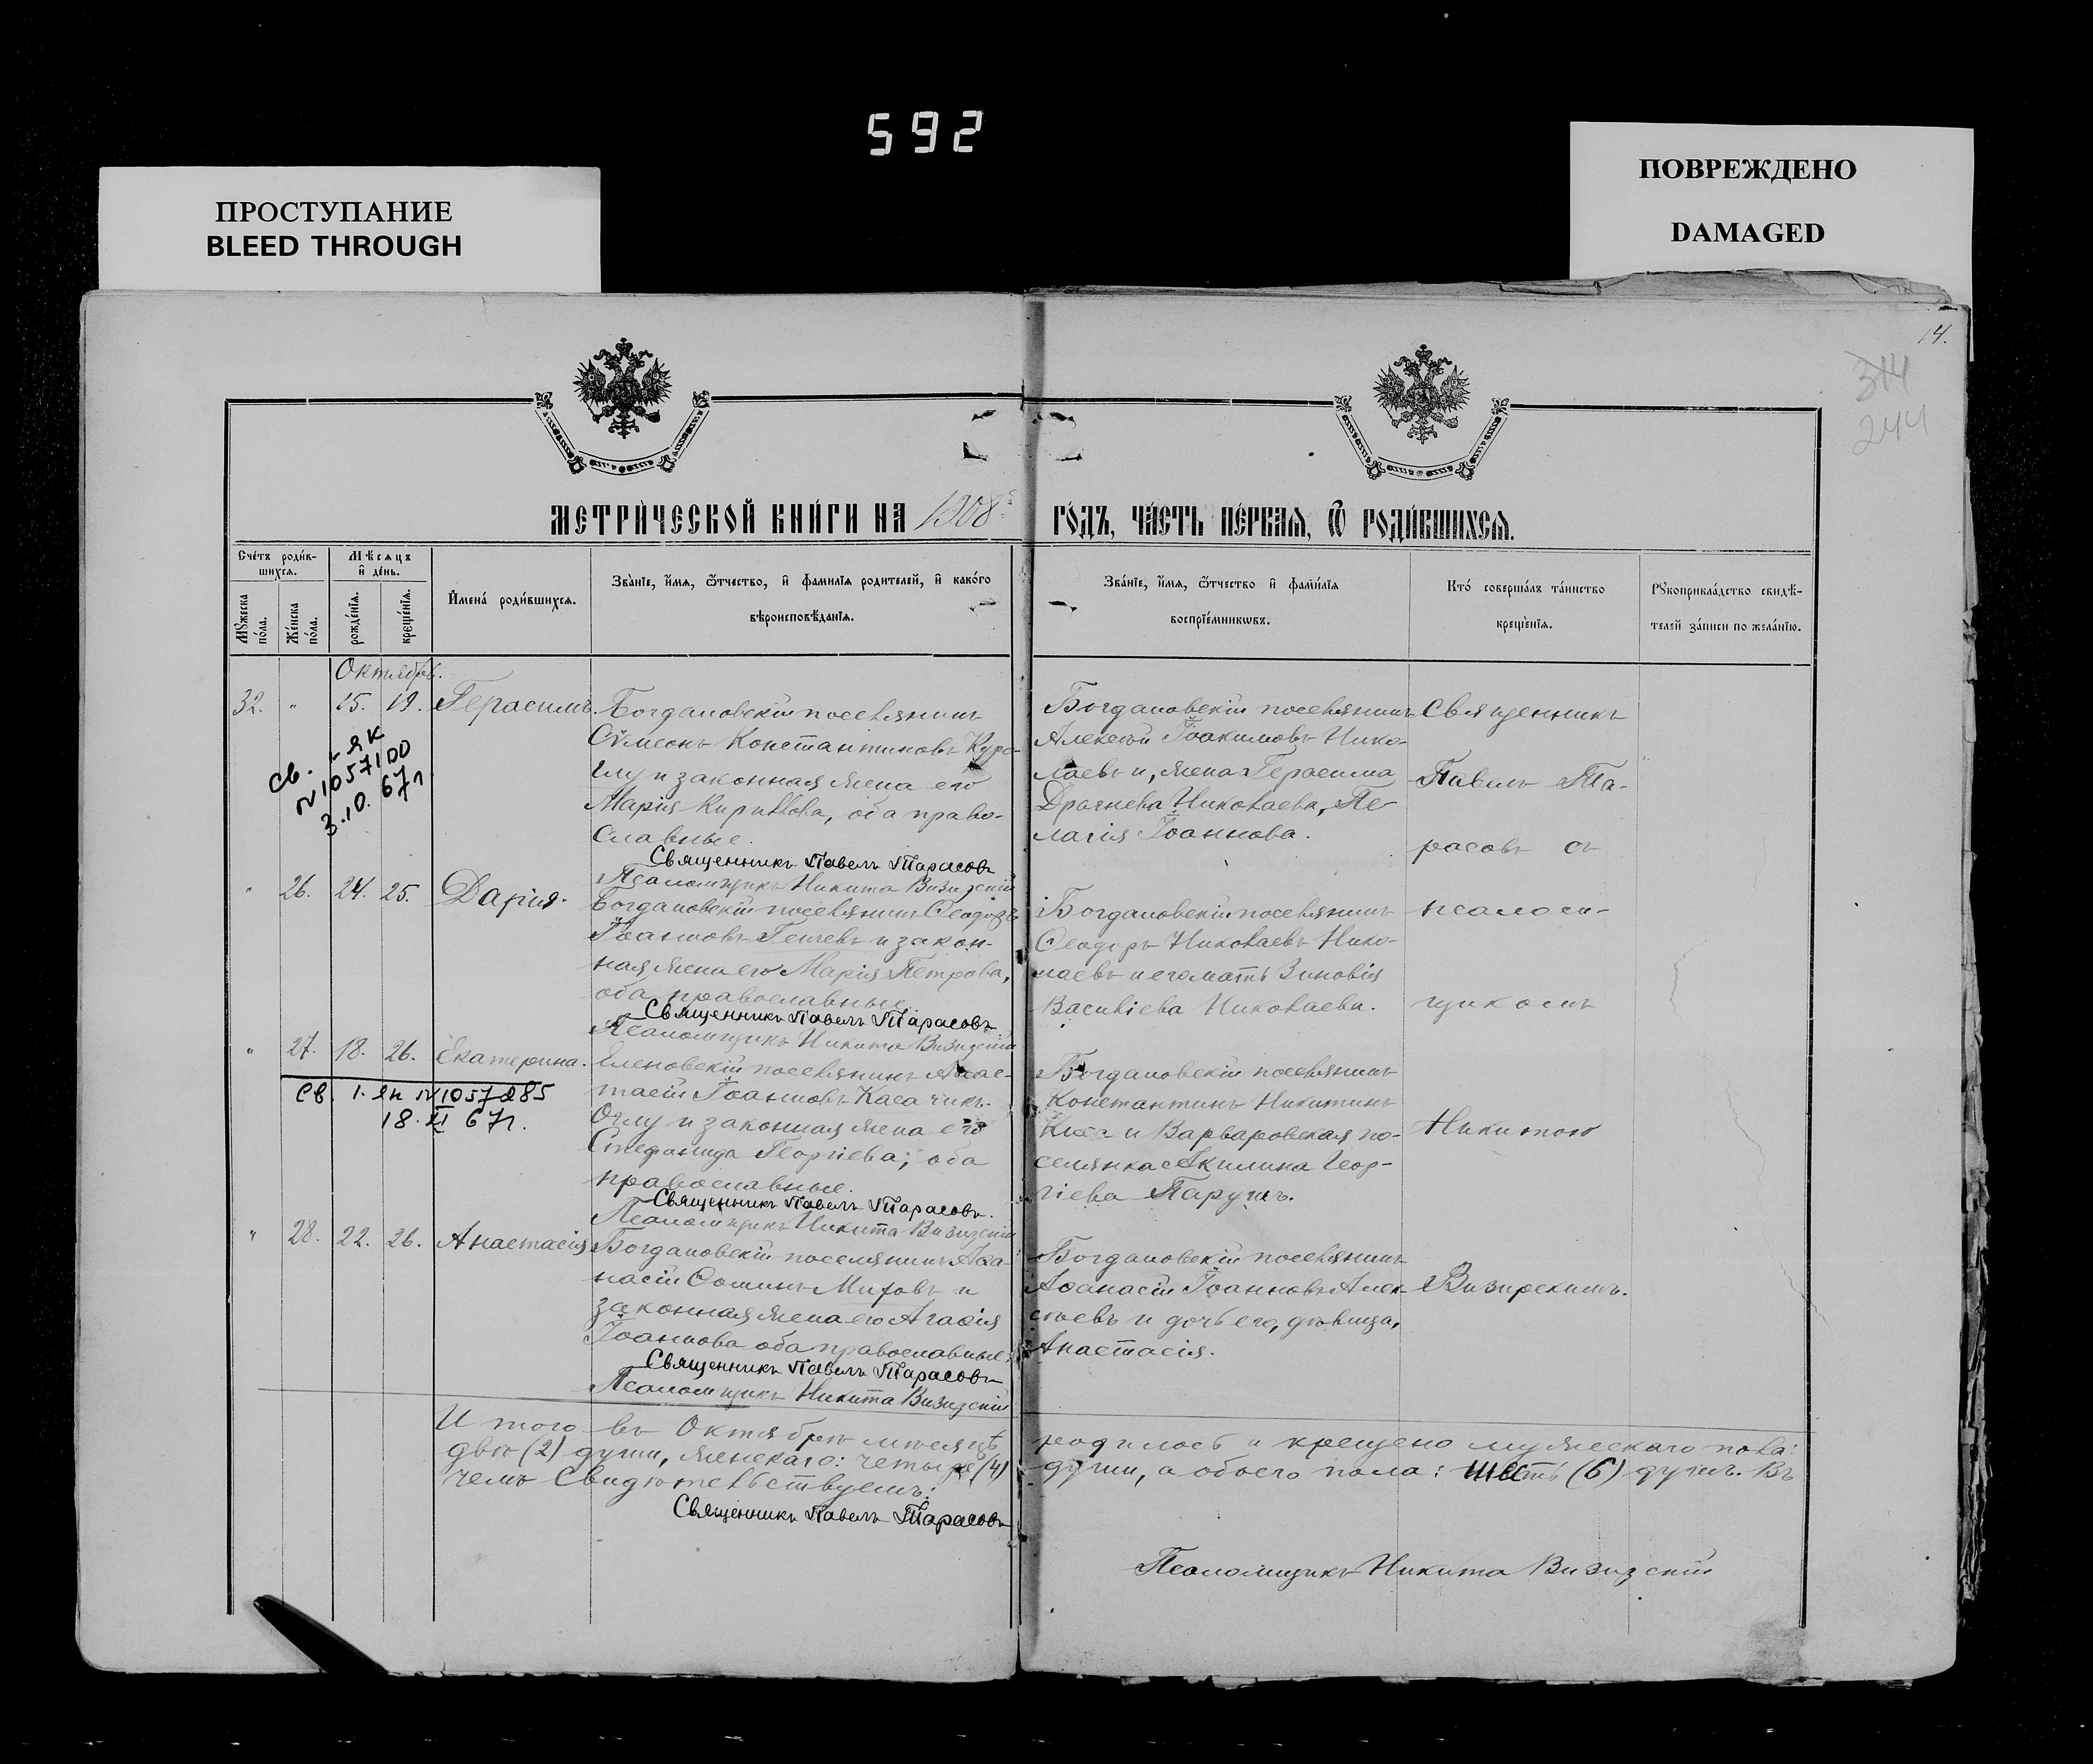 592
ПРОСТУПАНИЕ
BLEED THROUGH
ПОВРЕЖДЕНО
DAMAGED
14.
314
244
МЕТРИЧЕСКОЙ КНИГИ НА 1908 ГОДЪ, ЧАСТЬ ПЕРВАЯ, Ѿ РОДИВШИХСЯ.
Счетъ родив-
шихся.
Мѣсяцъ
и день.
Мужеска
пола.
Женска
пола.
рожденія.
крещенія.
Имена родившихся.
Званіе, имя, ѿтчество, и фамилія родителей, и какого
вѣроисповѣданія.
Званіе, имя, ѿтчество и фамилія
воспріемникѡвъ.
Кто совершалъ таинство
крещенія.
Рукоприкладство свидѣ-
телей записи по желанію.
Октябрь.
32. " 15. 19. Герасимъ.
Богдановскій поселянинъ
Сѵмеонъ Константиновъ Куро-
глу и законная жена его
Марія Кирилова, оба право-
славные.
Священникъ Павелъ Тарасовъ
Псаломщикъ Никита Визирскій
Богдановскій поселянинъ
Алексѣй Іоакимовъ Нико-
лаевъ и, жена Герасима
Драгнева Николаева, Пе-
лагія Іоаннова.
Священникъ
Павелъ Та-
расовъ съ
псалом-
щикомъ
Никитою
Визирскимъ.
св. - як
№ 1057100
3.10. 67 г
" 26. 24. 25. Дарія.
Богдановскій поселянинъ Ѳеодоръ
Іоанновъ Генчевъ и закон-
ная жена его Марія Петрова,
оба православные.
Священникъ Павелъ Тарасовъ
Псаломщикъ Никита Визирскій
Богдановскій поселянинъ
Ѳеодоръ Николаевъ Нико-
лаевъ и его мать Зиновія
Василіева Николаева.
" 27. 18. 26. Екатерина.
св. 1. як № 1057285
18. XI 67 г.
Еленовскій поселянинъ Анас-
тасій Іоанновъ Касачикъ-
Оглу и законная жена его
Стефанида Георгіева, оба
православные.
Священникъ Павелъ Тарасовъ.
Псаломщикъ Никита Визирскій
Богдановскій поселянинъ
Константинъ Никитинъ
и Варваровская по-
селянка Акилина Геор-
гіева Парушъ.
" 28. 22. 26. Анастасія
Богдановскій поселянинъ Аѳа-
насій Ѳоминъ Митовъ и
законная жена его Агаѳія
Іоаннова оба православные.
Священникъ Павелъ Тарасовъ
Псаломщикъ Никита Визирскій
Богдановскій поселянинъ
Аѳанасій Іоанновъ Алек-
сѣевъ и дочь его, дѣвица,
Анастасія.
И того въ Октябрѣ мѣсяцѣ родилось и крещено мужескаго пола:
двѣ (2) души, женскаго: четыре (4) души, а обоего пола: шесть (6) душъ. Въ
чемъ свидѣтельствуемъ:
Священникъ Павелъ Тарасовъ
Псаломщикъ Никита Визирскій